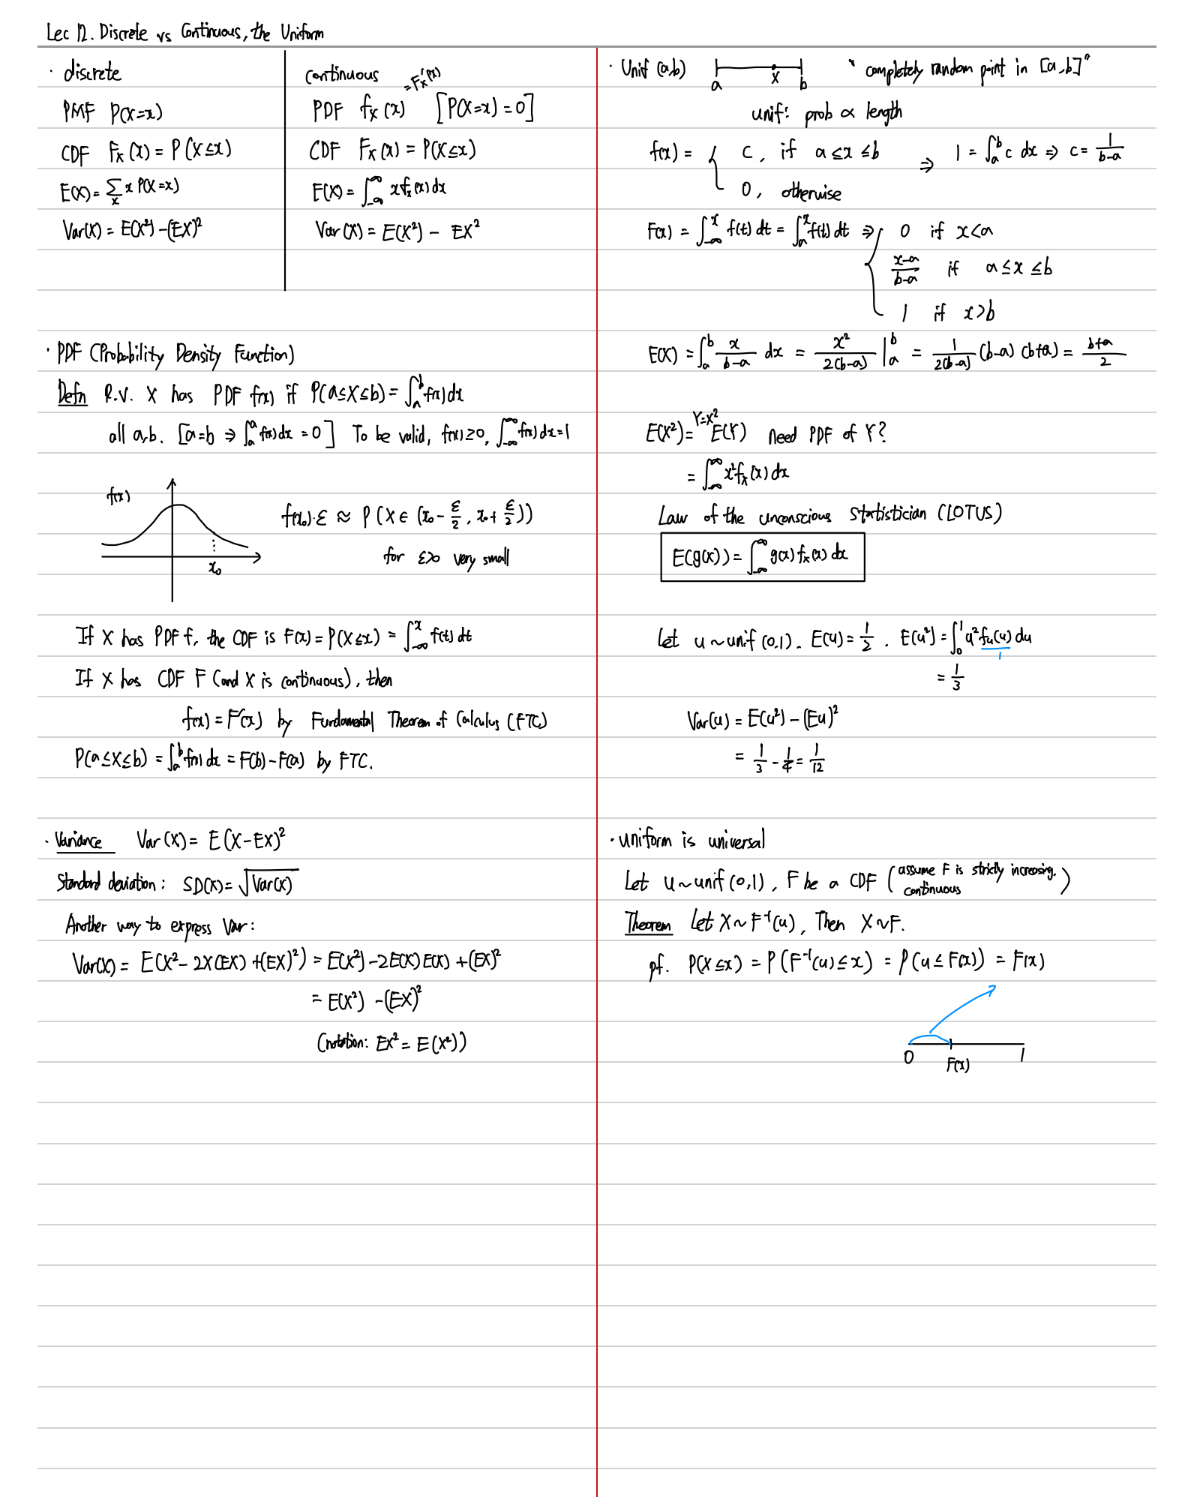 Lec 12. Discrete vs Continuous, the Uniform
· discrete
PMF P(X=x)
CDF Fx(x) = P(X≤x)
E(X) = Σx x P(X=x)
Var(X) = E(X²) - (EX)²
continuous
PDF fx(x) = Fx'(x) [P(X=x) = 0]
CDF Fx(x) = P(X≤x)
E(X) = ∫-∞^∞ x fx(x) dx
Var(X) = E(X²) - EX²
· PDF (Probability Density Function)
Defn R.V. X has PDF f(x) if P(a≤X≤b) = ∫a^b f(x) dx
all a,b. [a=b ⇒ ∫a^a f(x) dx = 0] To be valid, f(x)≥0, ∫-∞^∞ f(x) dx = 1
f(x)
x₀
f(x₀)·ε ≈ P(X ∈ (x₀ - ε/2, x₀ + ε/2))
for ε>0 very small
If X has PDF f, the CDF is F(x) = P(X≤x) = ∫-∞^x f(t) dt
If X has CDF F (and X is continuous), then
f(x) = F'(x) by Fundamental Theorem of Calculus (FTC)
P(a≤X≤b) = ∫a^b f(x) dx = F(b) - F(a) by FTC.
· Variance Var(X) = E(X-EX)²
Standard deviation: SD(X) = √Var(X)
Another way to express Var:
Var(X) = E(X² - 2X(EX) + (EX)²) = E(X²) - 2E(X)E(X) + (EX)²
= E(X²) - (EX)²
(notation: EX² = E(X²))
· Unif (a,b) a x b "completely random point in [a,b]"
unif: prob ∝ length
f(x) = { c, if a≤x≤b ⇒ 1 = ∫a^b c dx ⇒ c = 1/(b-a)
0, otherwise
F(x) = ∫-∞^x f(t) dt = ∫a^x f(t) dt ⇒ { 0 if x<a
(x-a)/(b-a) if a≤x≤b
1 if x>b
E(X) = ∫a^b x/(b-a) dx = x²/2(b-a) |a^b = 1/2(b-a) (b-a)(b+a) = (b+a)/2
Y=X²
E(X²) = E(Y) need PDF of Y?
= ∫-∞^∞ x² fx(x) dx
Law of the unconscious Statistician (LOTUS)
E(g(x)) = ∫-∞^∞ g(x) fx(x) dx
Let u ~ unif (0,1). E(u) = 1/2. E(u²) = ∫0^1 u² fu(u) du
1
= 1/3
Var(u) = E(u²) - (Eu)²
= 1/3 - 1/4 = 1/12
· uniform is universal
Let u ~ unif (0,1), F be a CDF (assume F is strictly increasing, continuous)
Theorem Let X ~ F⁻¹(u), Then X ~ F.
pf. P(X≤x) = P(F⁻¹(u) ≤ x) = P(u ≤ F(x)) = F(x)
0 F(x) 1